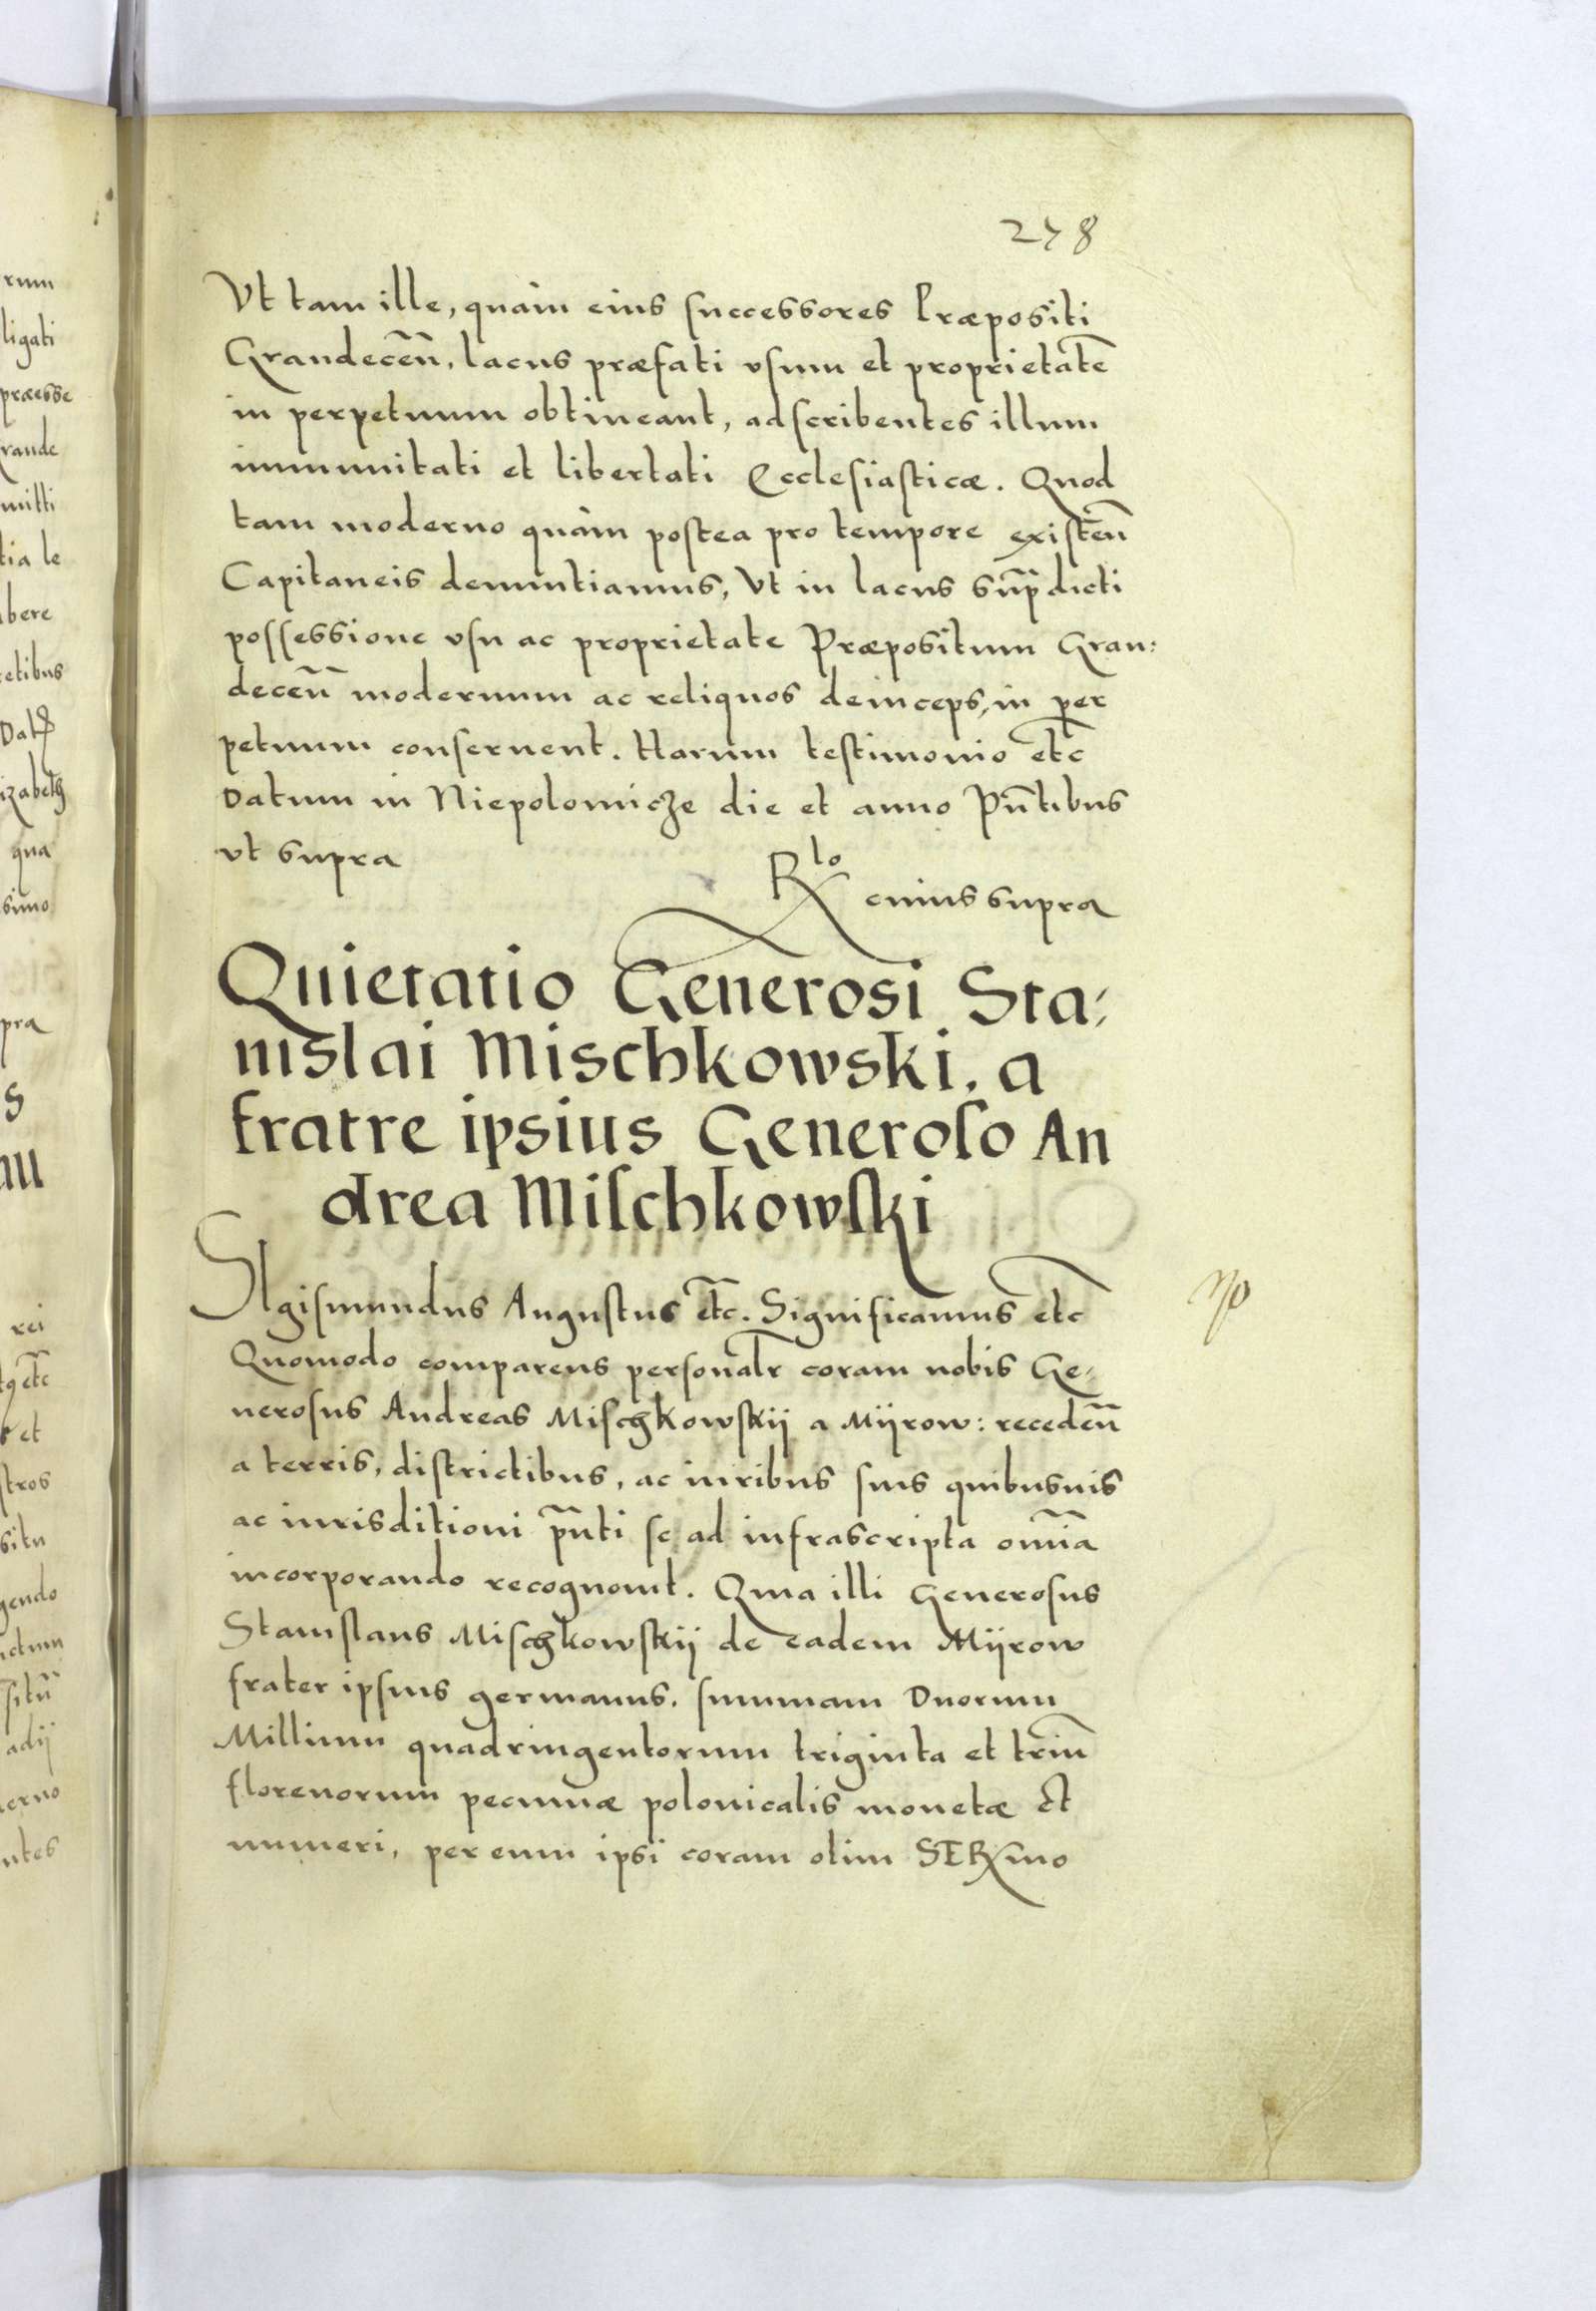 278
Vt tam ille, quàm eius successores Præpositi
Grandeceñ, lacus præfati vsum et proprietatē
in perpetuum obtineant, adscribentes illum
immunitati et libertati Ecclesiasticæ. Quod
tam moderno quàm postea pro tempore existeñ
Capitaneis denuntiamus, Vt in lacus sup̃dicti
possessione vsu ac proprietate Præpositum Gran:
deceñ modernum ac reliquos deinceps, in per
petuum conseruent. Harum testimonio etc̃
Datum in Niepolomicze die et anno Pñtibus
vt supra
Rlo cuius supra
Quietatio Generosi Sta,
nislai Mischkowski, a
fratre ipsius Generoso An
drea Mischkowski
SIgismundus Augustus etc̃. Significamus etc̃
Quomodo comparens personalr̃ coram nobis Ge,
nerosus Andreas Mischkowskij a Mijrow: recedeñ
a terris, districtibus, ac iuribus suis quibusuis
ac iurisditioni p̃nti se ad infrascripta om̃ia
incorporando recognouit. Quia illi Generosus
Stanislaus Mischkowskij de eadem Mijrow
frater ipsius germanus, summam Duorum
Millium quadringentorum triginta et triũ
florenorum pecuniæ polonicalis monetæ et
numeri, per eum ipsi coram olim SERmo
rum
ligati
præesse
rande
mitti
tia le
bere
retibus
izabeth
qua
simo
pra
s
rei
etc̃
et
stros
situ
gendo
adij
erno
ntes